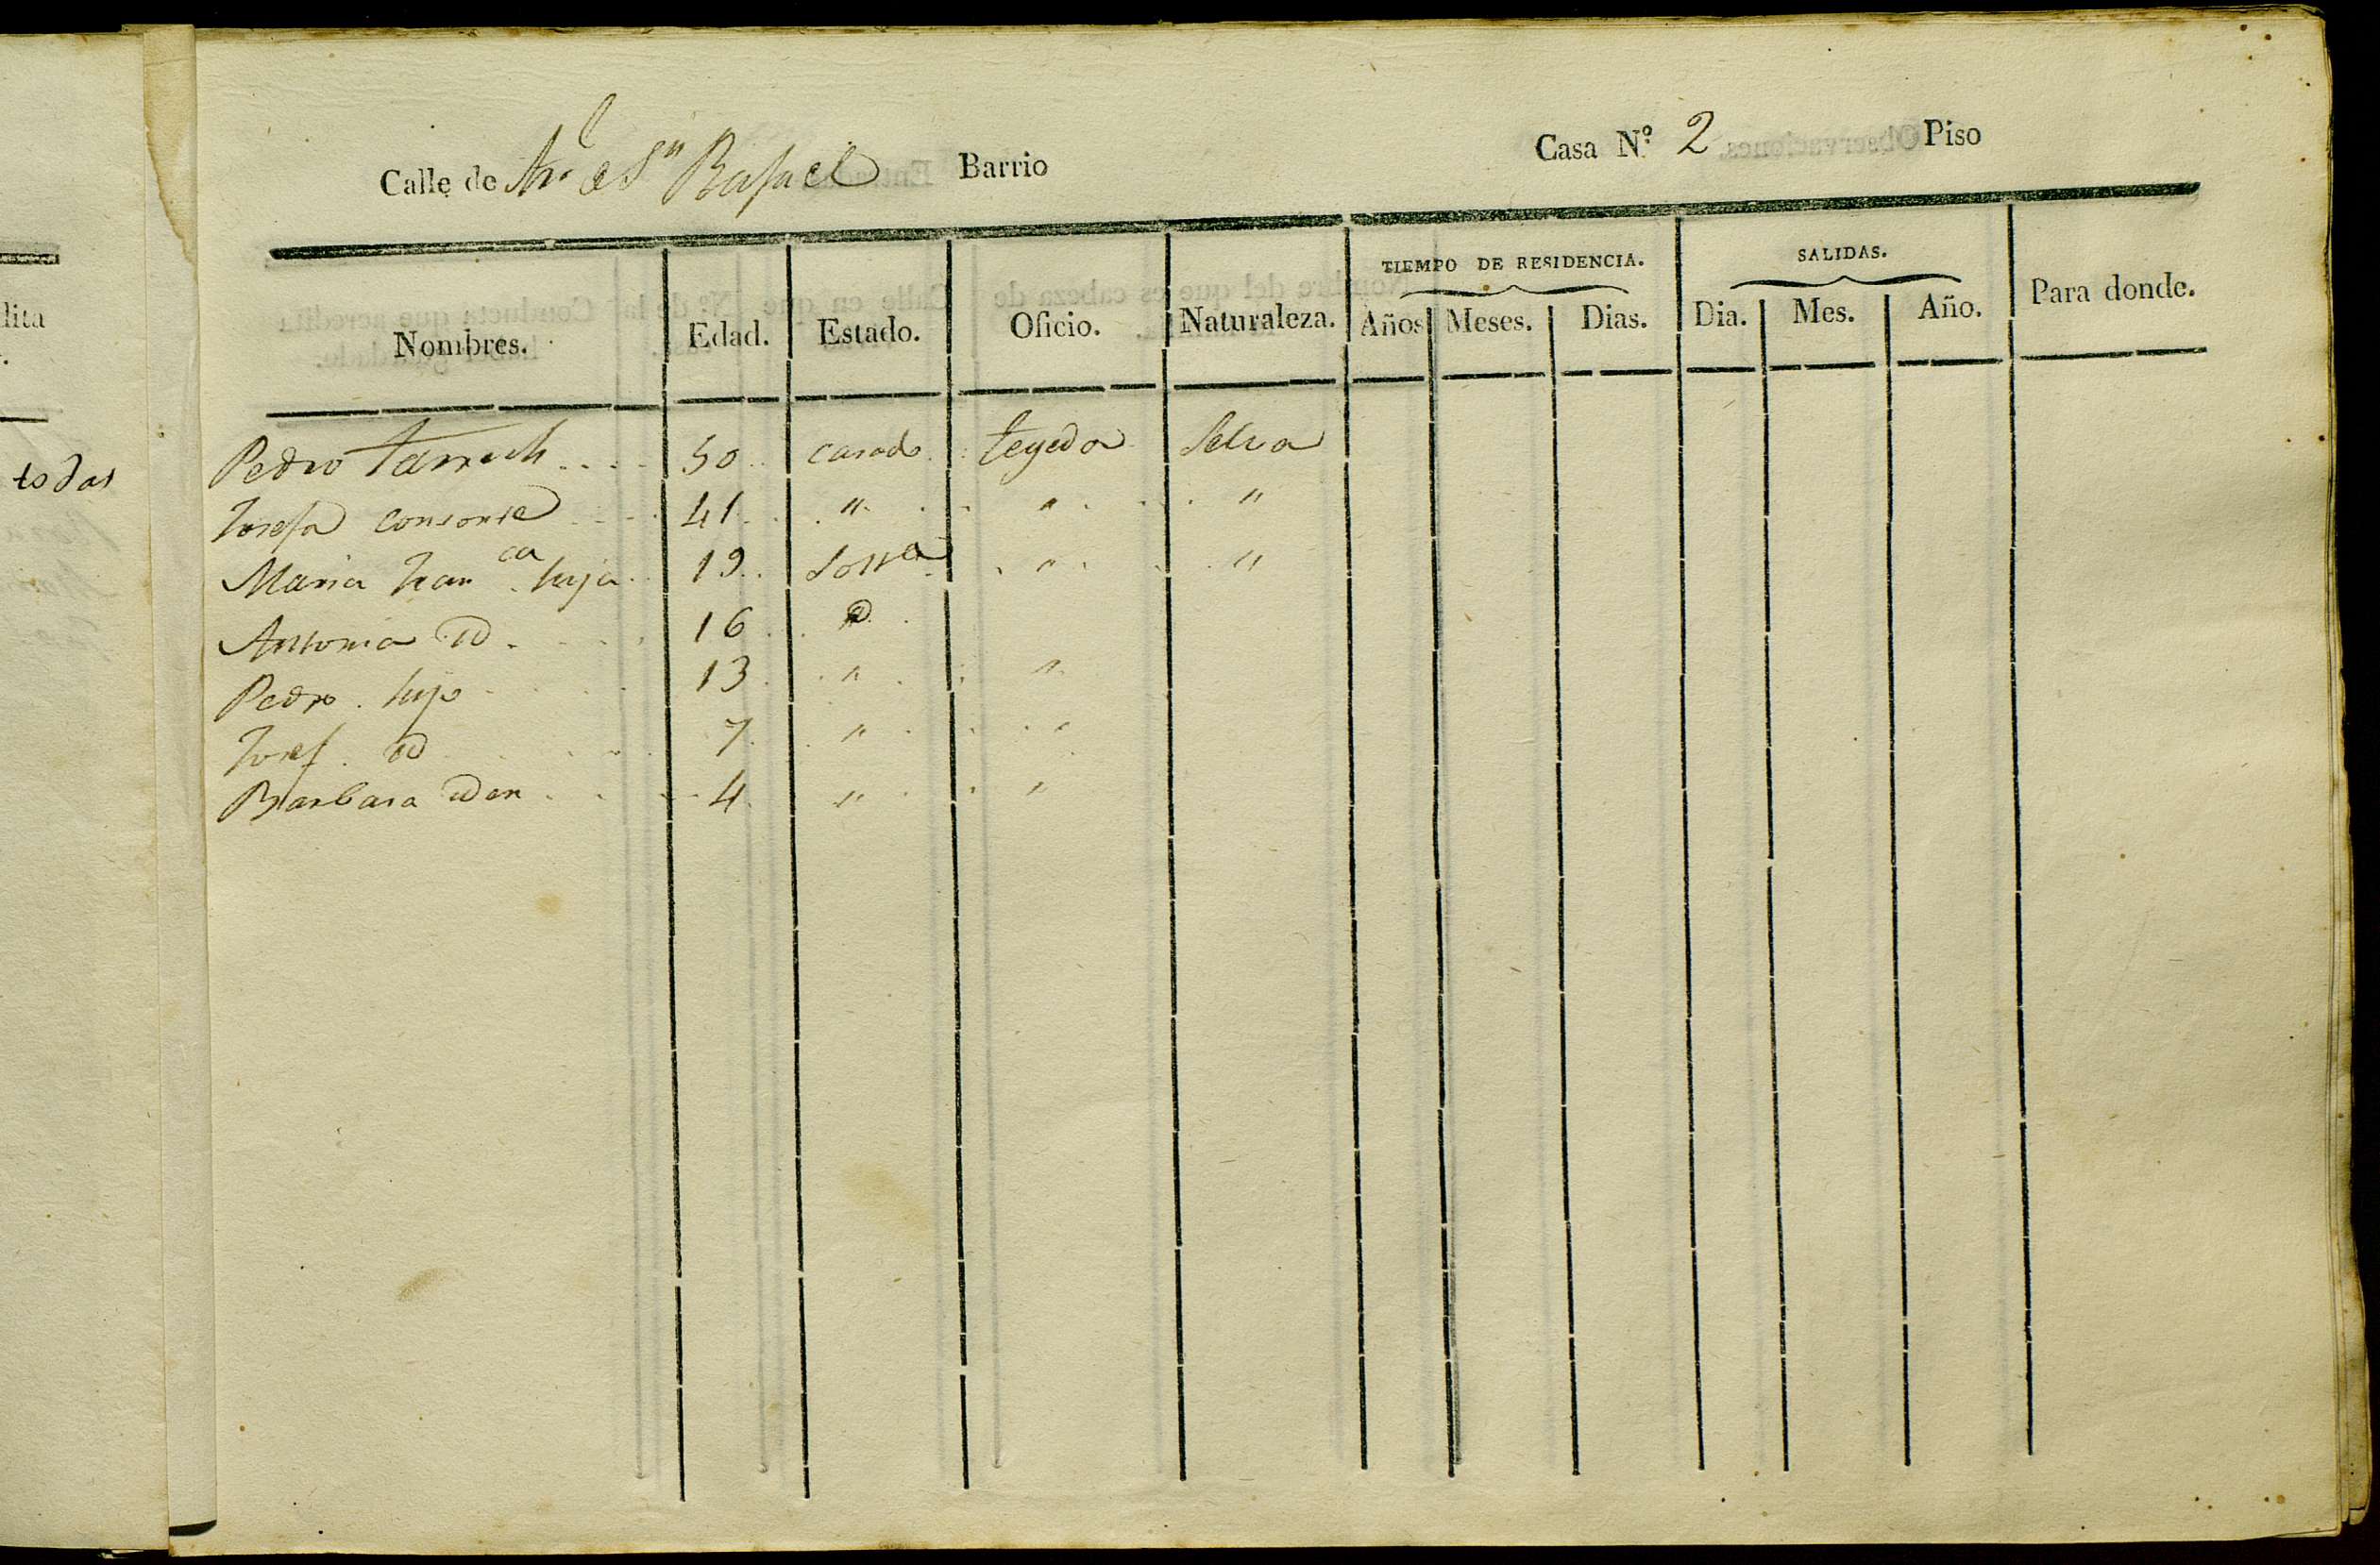 Calle de Sn Rafael Barrio Casa N.º 2 Piso
Nombres. Edad. Estado. Oficio. Naturaleza. TIEMPO DE RESIDENCIA. Años Meses. Dias. SALIDAS. Dia. Mes. Año. Para donde.
Pedro 50 casado tegedor Selva
Josefa consorte 41 " " "
Maria Franca hija 19 Solta " "
Antonia id 16 id
Pedro hijo 13 " "
Josef id 7 " "
Barbara idem 4 " "
lita
todas